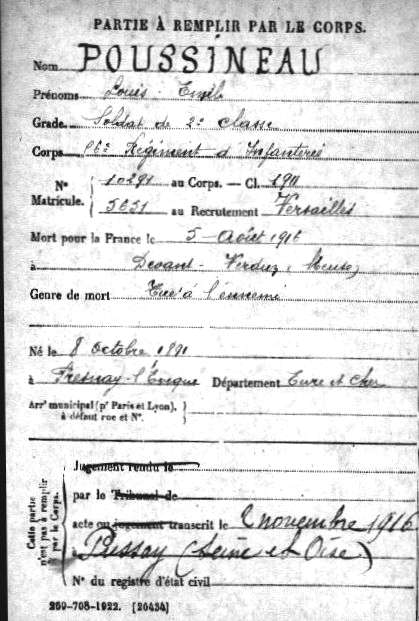 PARTIE À REMPLIR PAR LE CORPS.
Nom POUSSINEAU
Prénoms Louis Emile
Grade Soldat de 2e classe
Corps Régiment d'Infanterie
N° Matricule. 10291 au Corps. — Cl. 1911
5651 au Recrutement Versailles
Mort pour la France le 5 Août 1916
à Devant Verdun (Meuse)
Genre de mort Tué à l'ennemi
Né le 8 octobre 1891
à Fresnay-l'Evêque Département Eure et Cher
Arrt municipal (pr Paris et Lyon),
à défaut rue et N°.
Cette partie
n'est pas à remplir
par le Corps.
Jugement rendu le
par le Tribunal de
acte ou jugement transcrit le 2 novembre 1916
à Pussay (Seine et Oise)
N° du registre d'état civil
269-708-1922. [26434]